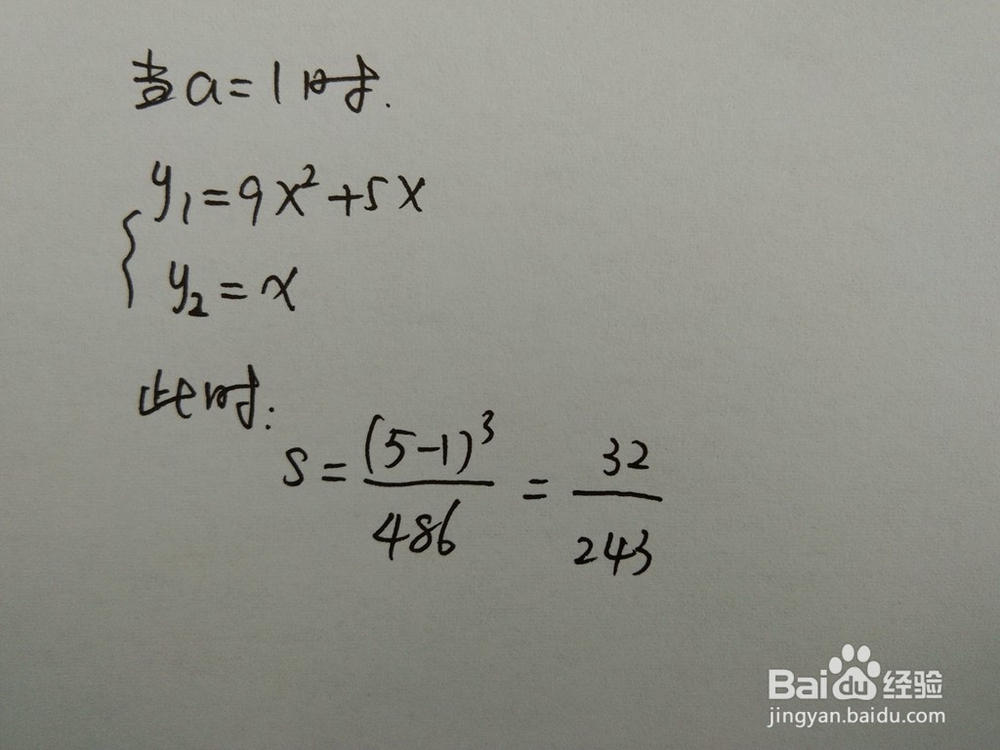 当a=1时.
y₁=9x²+5x
y₂=x
此时:
S=(5-1)³/486=32/243
Baidu经验
jingyan.baidu.com